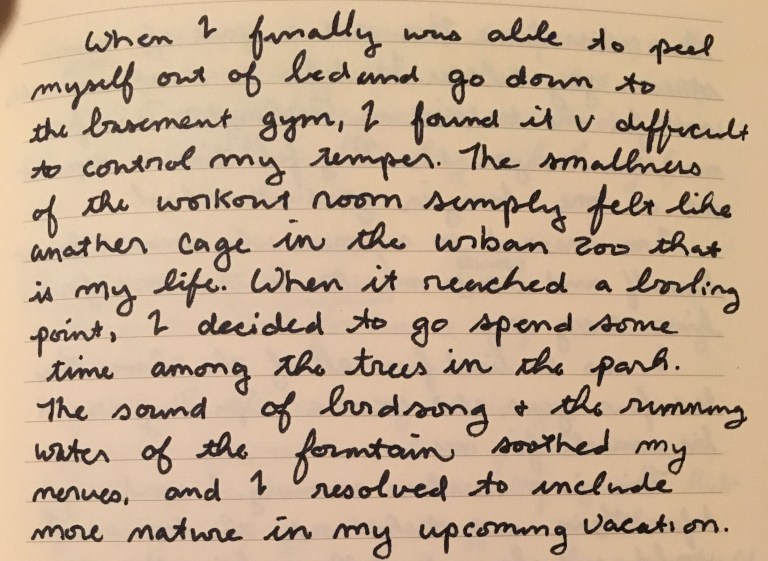 When I finally was able to peel
myself out of bed and go down to
the basement gym, I found it v difficult
to control my temper. The smallness
of the workout room simply felt like
another cage in the urban zoo that
is my life. When it reached a boiling
point, I decided to go spend some
time among the trees in the park.
The sound of birdsong + the running
water of the fountain soothed my
nerves, and I resolved to include
more nature in my upcoming vacation.